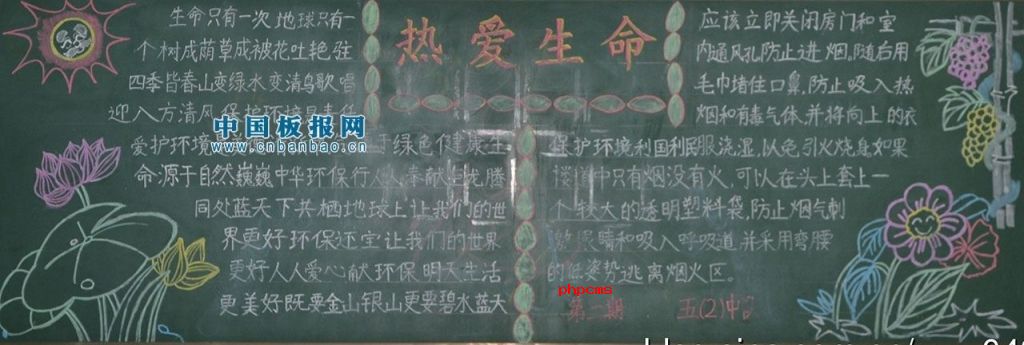 热爱生命
生命只有一次 地球只有一
个树成荫草成被花吐艳驻
四季皆春山变绿水变清鸟歌唱
迎入方清风保护环境
中国板报网
www.cnbanbao.cn
爱护环境 于绿色健康生
命源于自然巍巍中华环保行人人奉献
同处蓝天下共栖地球上让我们的世
界更好环保还宝让我们的世界
更好人人爱心献环保明天生活
更美好既要金山银山更要碧水蓝天
应该立即关闭房门和室
内通风孔防止进烟。随后用
毛巾堵住口鼻,防止吸入热
烟和有毒气体,并将向上的衣
保护环境利国利民服浇湿,以免引火烧身如果
楼道中只有烟没有火,可以在头上套上一
个较大的透明塑料袋,防止烟气刺
激眼睛和吸入呼吸道并采用弯腰
的低姿势逃离烟火区。
phpcms
第二期 五(2)中